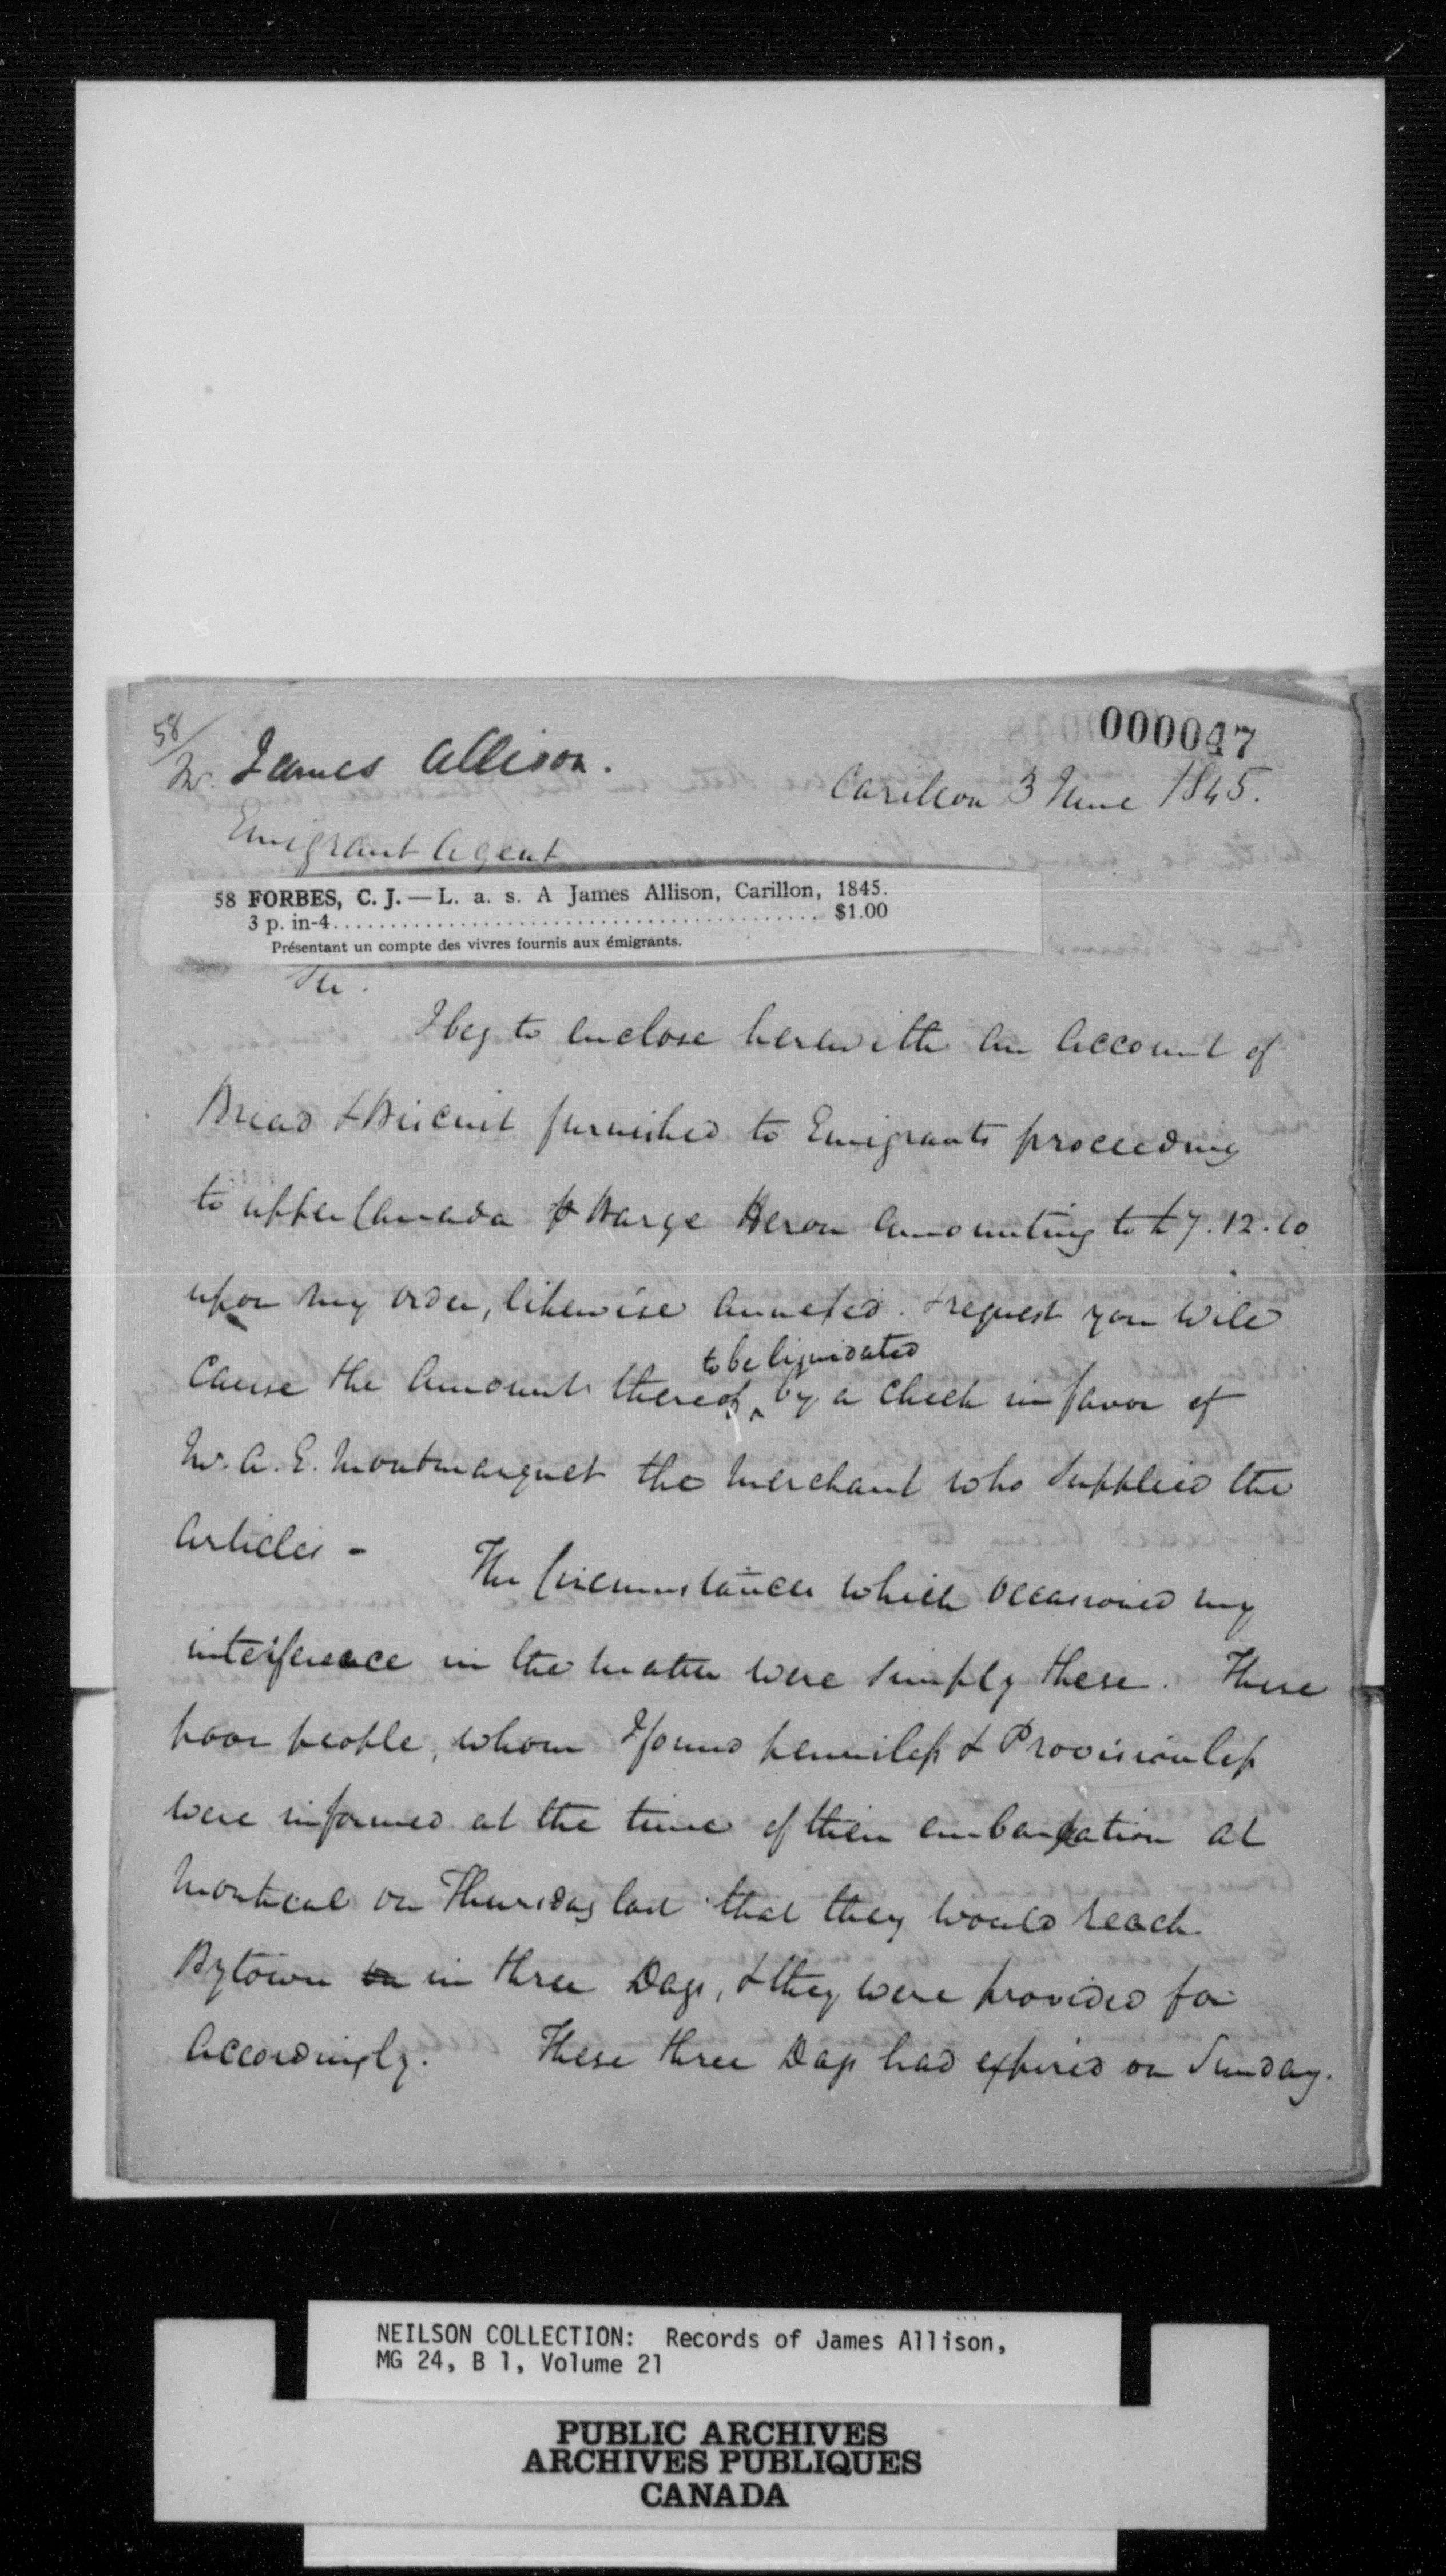 58/
000047
Mr. James Allison.
Carillon 3 June 1845.
Emigrant Agent
58 FORBES, C. J. — L. a. s. A James Allison, Carillon, 1845.
3 p. in-4........................................ $1.00
Présentant un compte des vivres fournis aux émigrants.
Sir.
I beg to enclose herewith an Account of
Bread & Biscuit furnished to Emigrants proceeding
to upper Canada p Barge Heron Amounting to £7.12.10
upon my order, likewise annexed. & request you will
Cause the Amount thereof, by a Check in favor of
to be liquidated
Mr. A. E. Montmarquet the Merchant who Supplied the
Articles -
The Circumstances which occasioned my
interference in the matter were simply these. These
poor people, whom I found penniless & Provisionless
were informed at the time of their embarkation at
Montreal on Thursday last that they would reach
Bytown in three Days, & they were provided for
Accordingly. These three Days had expired on Sunday.
NEILSON COLLECTION: Records of James Allison,
MG 24, B 1, Volume 21
PUBLIC ARCHIVES
ARCHIVES PUBLIQUES
CANADA